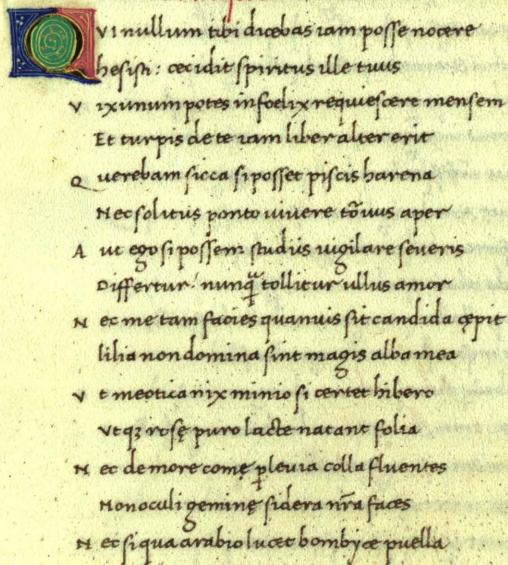 QVI nullum tibi dicebas iam posse nocere
hesisti: cecidit spiritus ille tuus
Vix unum potes infoelix requiescere mensem
Et turpis de te iam liber alter erit
Querebam sicca si posset piscis harena
Nec solitus ponto uiuere toruus aper
Aut ego si possem studiis uigilare seueris
Differtur: nunq̄ tollitur ullus amor
Nec me tam facies quanuis sit candida cępit
lilia non domina sint magis alba mea
Vt meotica nix minio si certet hibero
Vtq; rosę puro lacte natant folia
Nec de more comę ꝑ leuia colla fluentes
Non oculi geminę sidera nr̄a faces
Nec siqua arabio lucet bombyce puella